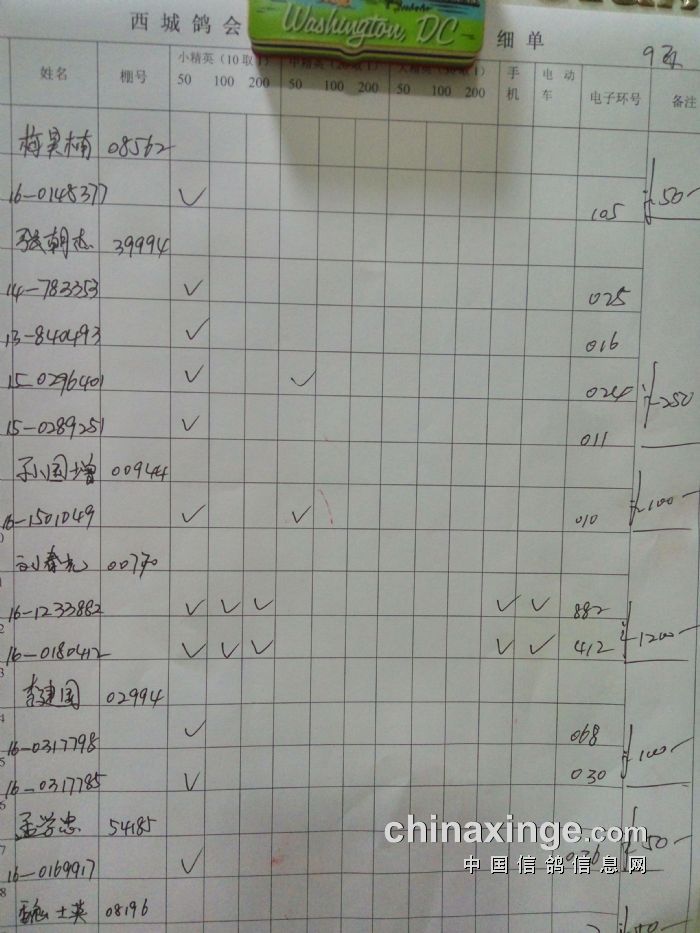 西城鸽会 细单
Washington, DC
9环
姓名 棚号 小精英(10取1) 中精英(20取1) 大精英(30取1) 手机 电动车 电子环号 备注
50 100 200 50 100 200 50 100 200
梅昊楠 08562
16-0145377 ✓ 105 50-
张朝杰 39994
14-783353 ✓ 025
13-840493 ✓ 016
15-0296401 ✓ ✓ 024 250
15-0289251 ✓ 011
孙国增 00944
16-1501049 ✓ ✓ 010 100-
刘春光 00770
16-1233882 ✓ ✓ ✓ ✓ ✓ 882
16-0180412 ✓ ✓ ✓ ✓ ✓ 412 1200-
李建国 02994
16-0317798 ✓ 068
16-0317785 ✓ 030 100-
孟学忠 54185
16-0169917 ✓ 036 50-
士英 08196
chinaxinge.com
中国信鸽信息网